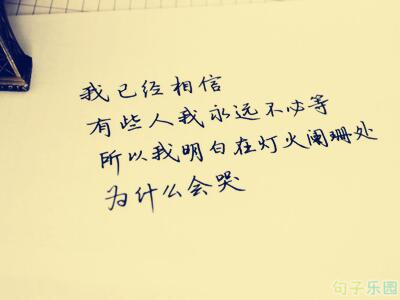 我已经相信
有些人我永远不必等
所以我明白在灯火阑珊处
为什么会哭
句子乐园